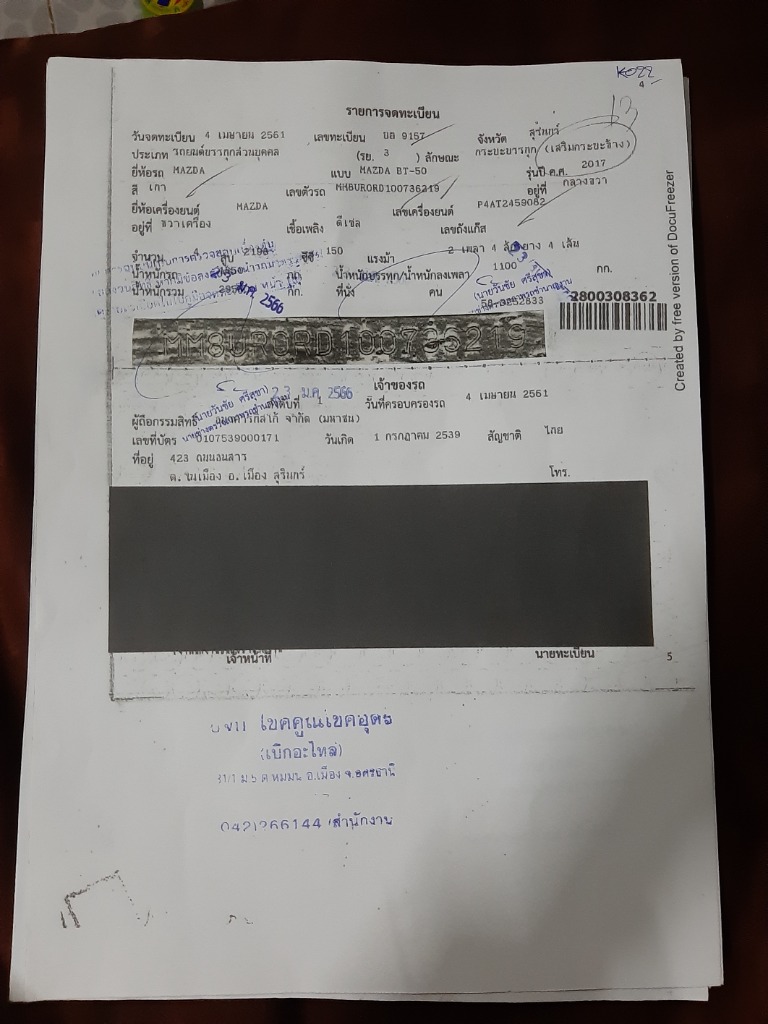 K022
4
13
รายการจดทะเบียน
วันจดทะเบียน 4 เมษายน 2561 เลขทะเบียน บล 9157 จังหวัด สุรินทร์
ประเภท รถยนต์บรรทุกส่วนบุคคล (รย. 3 ) ลักษณะ กระบะบรรทุก (เสริมกระบะข้าง)
ยี่ห้อรถ MAZDA แบบ MAZDA BT-50 รุ่นปี ค.ศ. 2017
สี เทา เลขตัวรถ MM8UR0RD100736219 อยู่ที่ กลางขวา
ยี่ห้อเครื่องยนต์ MAZDA เลขเครื่องยนต์ P4AT2459082
อยู่ที่ ขวาเครื่อง เชื้อเพลิง ดีเซล เลขถังแก๊ส
จำนวน สูบ 2198 ซีซี 150 แรงม้า 2 เพลา 4 ล้อ ยาง 4 เส้น
น้ำหนักรถ กก. น้ำหนักบรรทุก/น้ำหนักลงเพลา 1100 กก.
น้ำหนักรวม กก. ที่นั่ง คน
ม.ค. 2566
(นายวันชัย ศรีสุขา)
2800308362
MM8UR0RD100736219
23 ม.ค. 2566
เจ้าของรถ
ลำดับที่ 1 วันที่ครอบครองรถ 4 เมษายน 2561
(นายวันชัย ศรีสุขา)
ผู้ถือกรรมสิทธิ์ จำกัด (มหาชน)
เลขที่บัตร 0107539000171 วันเกิด 1 กรกฎาคม 2539 สัญชาติ ไทย
ที่อยู่ 423 ถนนธนสาร
ต.ในเมือง อ.เมือง สุรินทร์ โทร.
เจ้าหน้าที่ นายทะเบียน
5
Created by free version of DocuFreezer
เขตคูณเขตอุดร
(เบิกอะไหล่)
อ.เมือง จ.อุดรธานี
042)266144 สำนักงาน